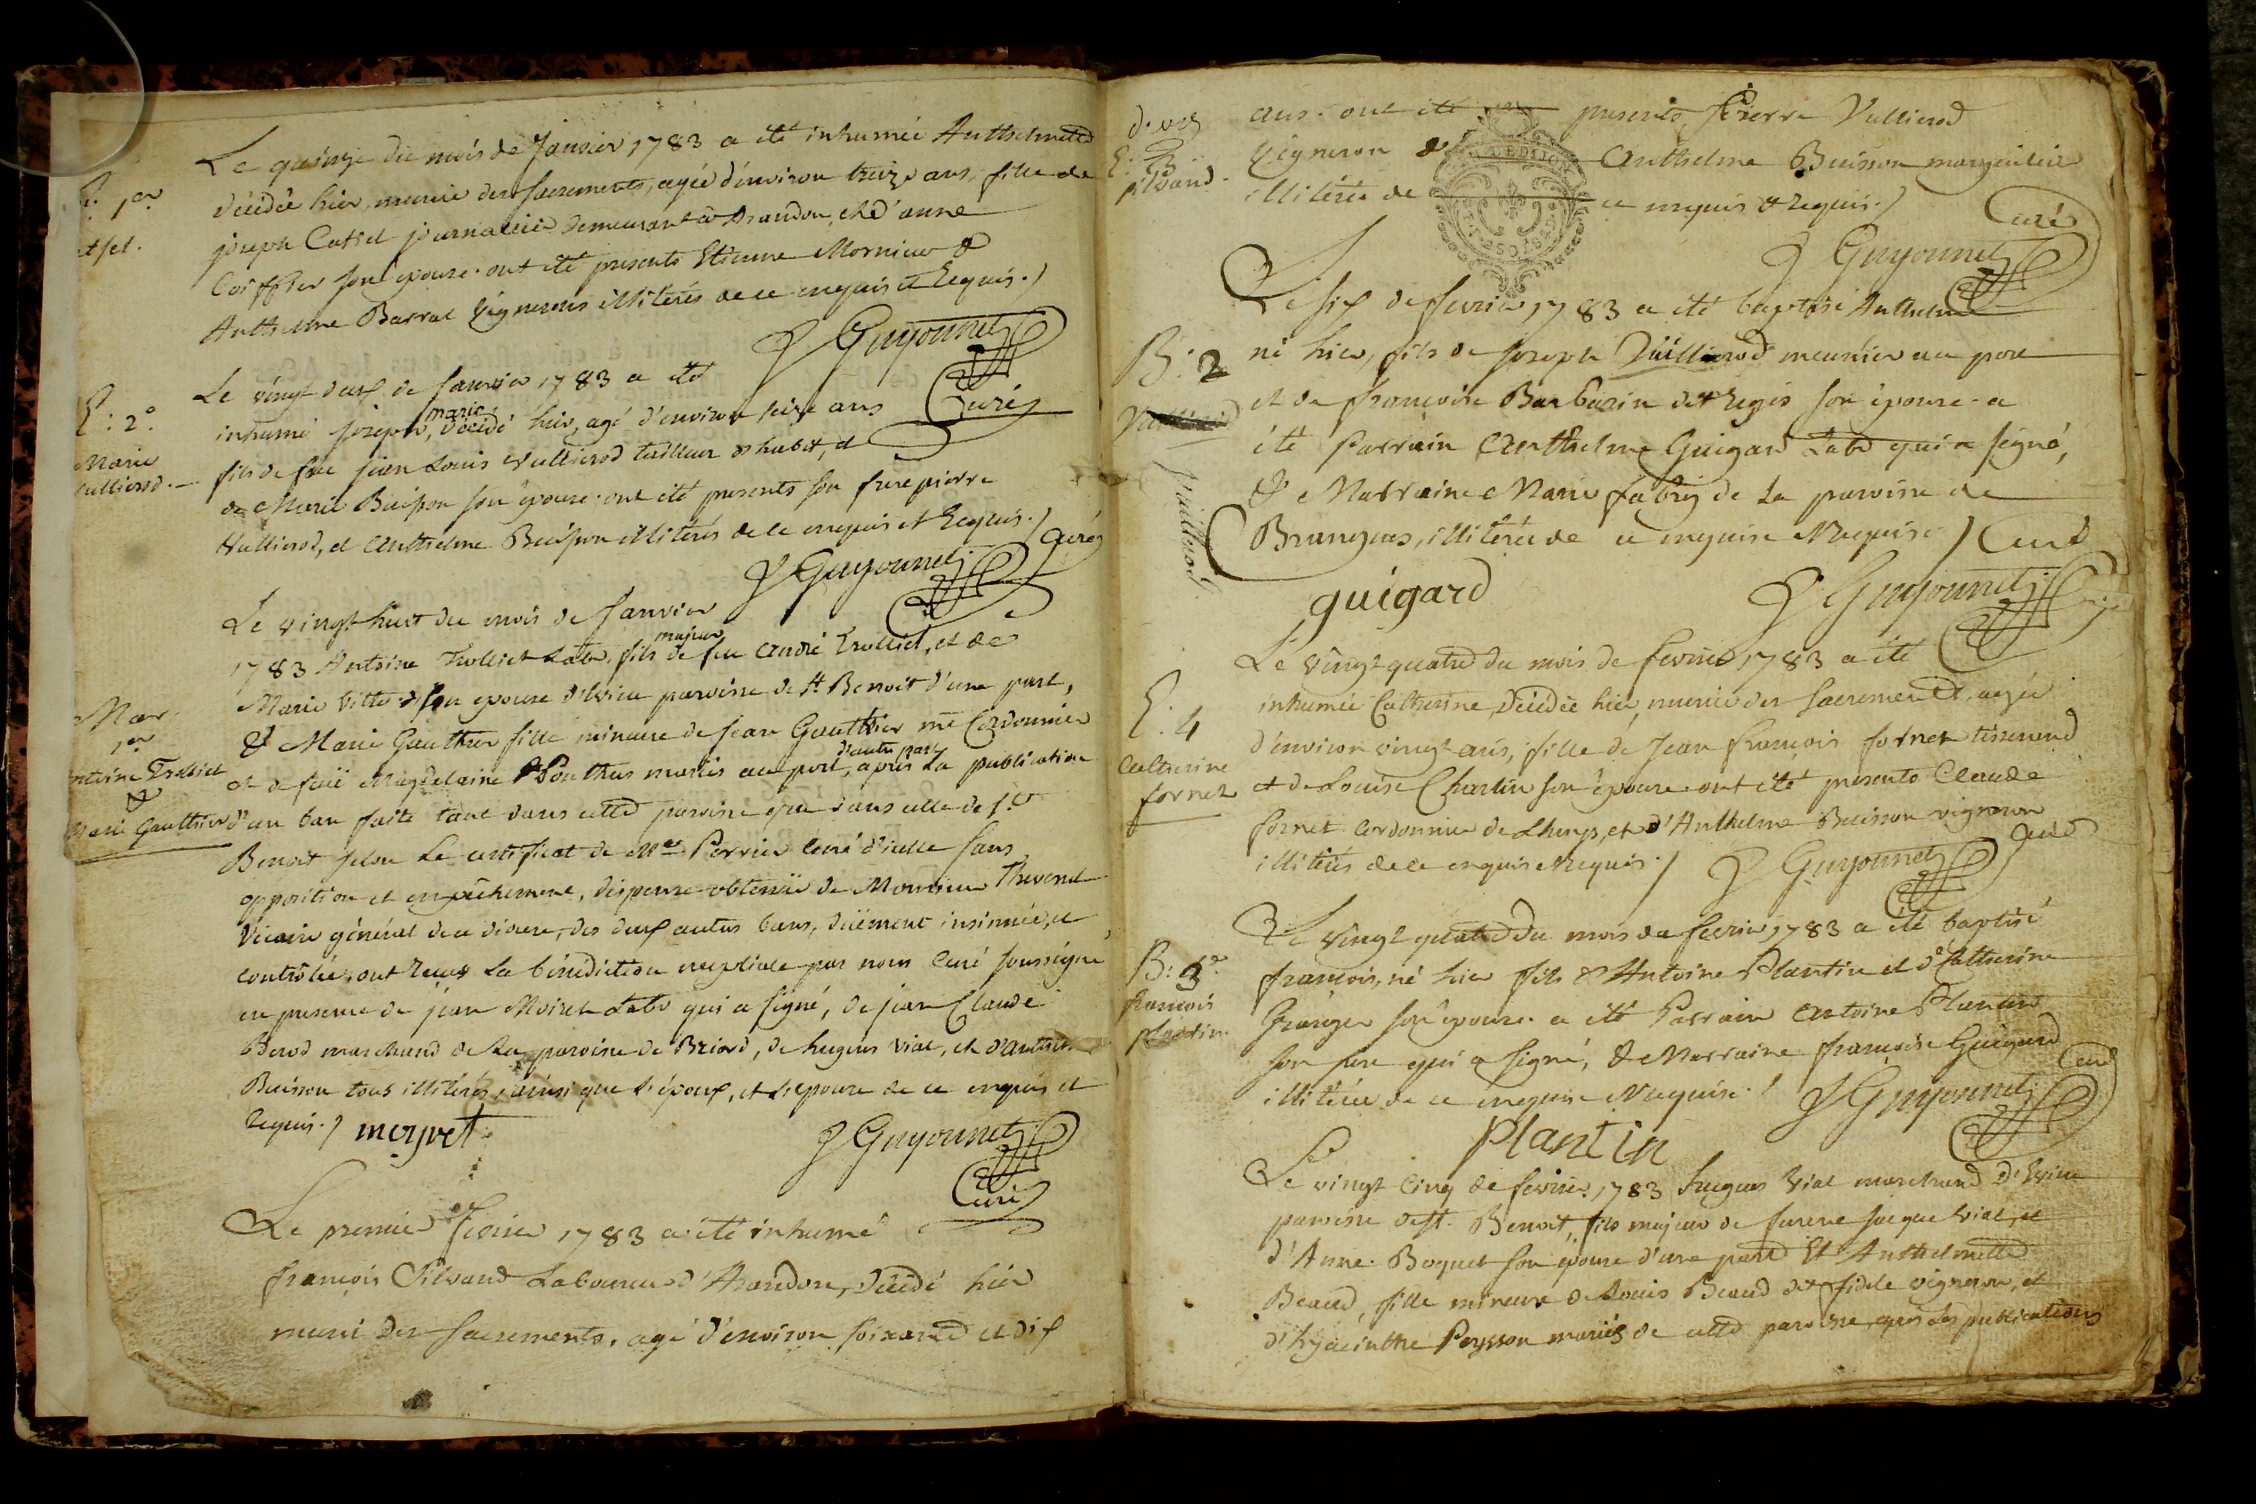 E: 1er
Le quinze du mois de Janvier 1783 a été inhumée Anthelmette
décédée hier, munie des sacrements, agée d'environ treize ans, fille de
joseph Catsel journalier demeurant a Arandon, et d'anne
Coiffier son épouse. ont été presents Etienne Mornieu &
Anthelme Barral vignerons illiterés de ce enquis et Requis./
J Guyonnet
Curé
E: 2e.
Marie
vullierod.
Le vingt deux de Janvier 1783 a été
inhumé joseph marie, décédé hier, agé d'environ seize ans
fils de feu jean Louis Vullierod tailleur d'habit, et
de Marie Buisson son épouse. ont été presents son frere pierre
Vullierod, et Anthelme Buisson illiterés de ce enquis et Requis./
J Guyonnet Curé
Mar.
1er
antoine Trolliet
&
Marie Gauthier
Le vingt huit du mois de Janvier
1783 Antoine Trolliet Labr, fils majeur de feu André Trolliet, et de
Marie Vitte son epouse d'Evieu paroisse de St Benoit d'une part,
& Marie Gauthier fille mineure de jean Gauthier me Cordonnier
et de feüe Magdelaine Ponthus mariés au port, d'autre part, après La publication
d'un ban faite tant dans cette paroisse que dans celle de St
Benoit selon Le certificat de Mre Perrier curé d'icelle sans
opposition et empêchement, dispense obtenüe de Monsieur Thevenet
Vicaire général de ce diocese, des deux autres bans, düement insinuée, et
contrôlée, ont reçus La bénédiction nuptiale par nous Curé soussigné
en presence de jean Moiret Labr qui a signé, de jean Claude
Berod marchand de La paroisse de Briord, de hugues vial, et d'Anthelme
Buisson tous illiterés, ainsi que L'époux, et L'epouse de ce enquis et
Requis./ moyret J Guyonnet
Curé
Le premier fevrier 1783 a été inhumé
françois Pilvand Laboureur d'Arandon, décédé hier
muni des sacrements, agé d'environ soixante et dix
E: 3
pilvand.
ans. ont été presents Pierre Vullierod
Vigneron & Anthelme Buisson marguilier
illiterés de ce enquis & requis./
J Guyonnet Curé
B: 2
Vullierod
Le six de fevrier 1783 a été baptisé Anthelme
né hier, fils de joseph Vüillierod meunier au port
et de françoise Barbarin dit Regis son épouse. a
été Parrain Anthelme Guigard Labr qui a signé,
& Marraine Marie fabry de La paroisse de
Brangues, illiterée de ce enquise & Requise./ Curé
guigard J Guyonnet
E: 4
Catherine
fornet
Le vingt quatre du mois de fevrier 1783 a été
inhumée Catherine, décédée hier, munie des sacrements, agée
d'environ vingt ans, fille de Jean françois fornet tisserand
et de Louise Charlin son épouse. ont été presents Claude
fornet cordonnier de Lhuys, et d'Anthelme Buisson vigneron
illiterés de ce enquis & requis./ J Guyonnet Curé
B: 3e
francois
plantin
Le vingt quatre du mois de fevrier 1783 a été baptisé
françois, né hier fils d'Antoine Plantin et de Catherine
Granger son épouse. a été Parrain Antoine Plantin
son frere qui a signé, & Marraine francoise Guigard
illiterée de ce enquise & Requise./ J Guyonnet Curé
plantin
Le vingt cinq de fevrier 1783 hugues Vial marchand d'Evieu
paroisse de St. Benoit, fils majeur de Jacque Vial, et
d'Anne Boquet son épouse d'une part Et Anthelmette
Beaud, fille mineure de Louis Beaud dit fidele vigneron, et
d'hyacinthe Peysson mariés de cette paroisse, après Les publications